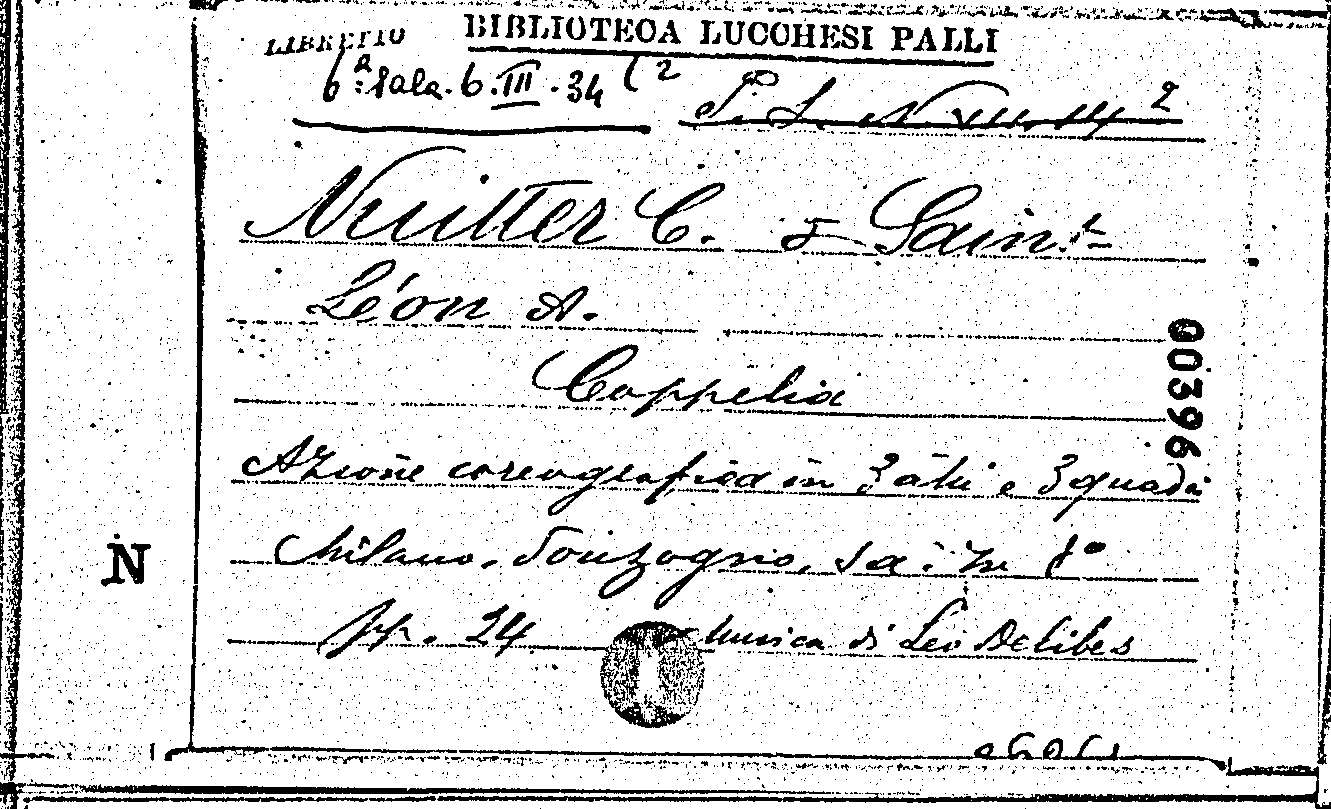 LIBRETTO
BIBLIOTECA LUCCHESI PALLI
6ª Sala. 6. III. 34 (2
Nuitter C. & Saint-
Léon A.
Coppelia
Azione coreografica in 3 atti e 3 quadri
Milano, Sonzogno, s.a. in 8º
pp. 24 Musica di Leo Delibes
00396
N